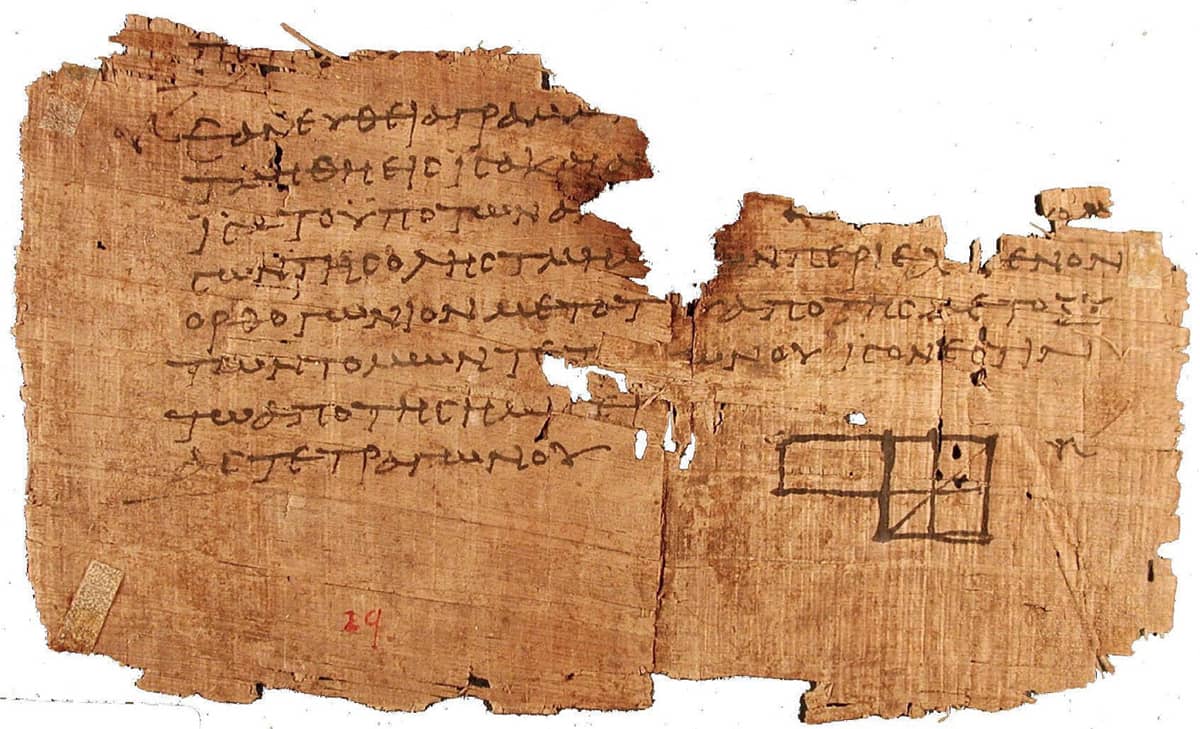 ΕΑΝ ΕΥΘΕΙΑ ΓΡΑΜΜ
ΤΜΗΘΗ ΕΙϹ ΙϹΑ ΚΑΙ Α
ΙϹΑ ΤΟ ΥΠΟ ΤΩΝ Α
ϹΩΝ ΤΗϹ ΟΛΗϹ ΤΜΗΜ ΩΝ ΠΕΡΙΕΧ ΜΕΝΟΝ
ΟΡΘΟΓΩΝΙΟΝ ΜΕΤΑ ΤΟΥ ΑΠΟ ΤΗϹ ΜΕΤΟΞΥ
ΤΩΝ ΤΟΜΩΝ ΤΕΤ ΓΩΝΟΥ ΙϹΟΝ ΕϹΤΙΝ
ΤΩ ΑΠΟ ΤΗϹ ΗΜΙϹΕΙ
ΑϹ ΤΕΤΡΑΓΩΝΟΥ
29